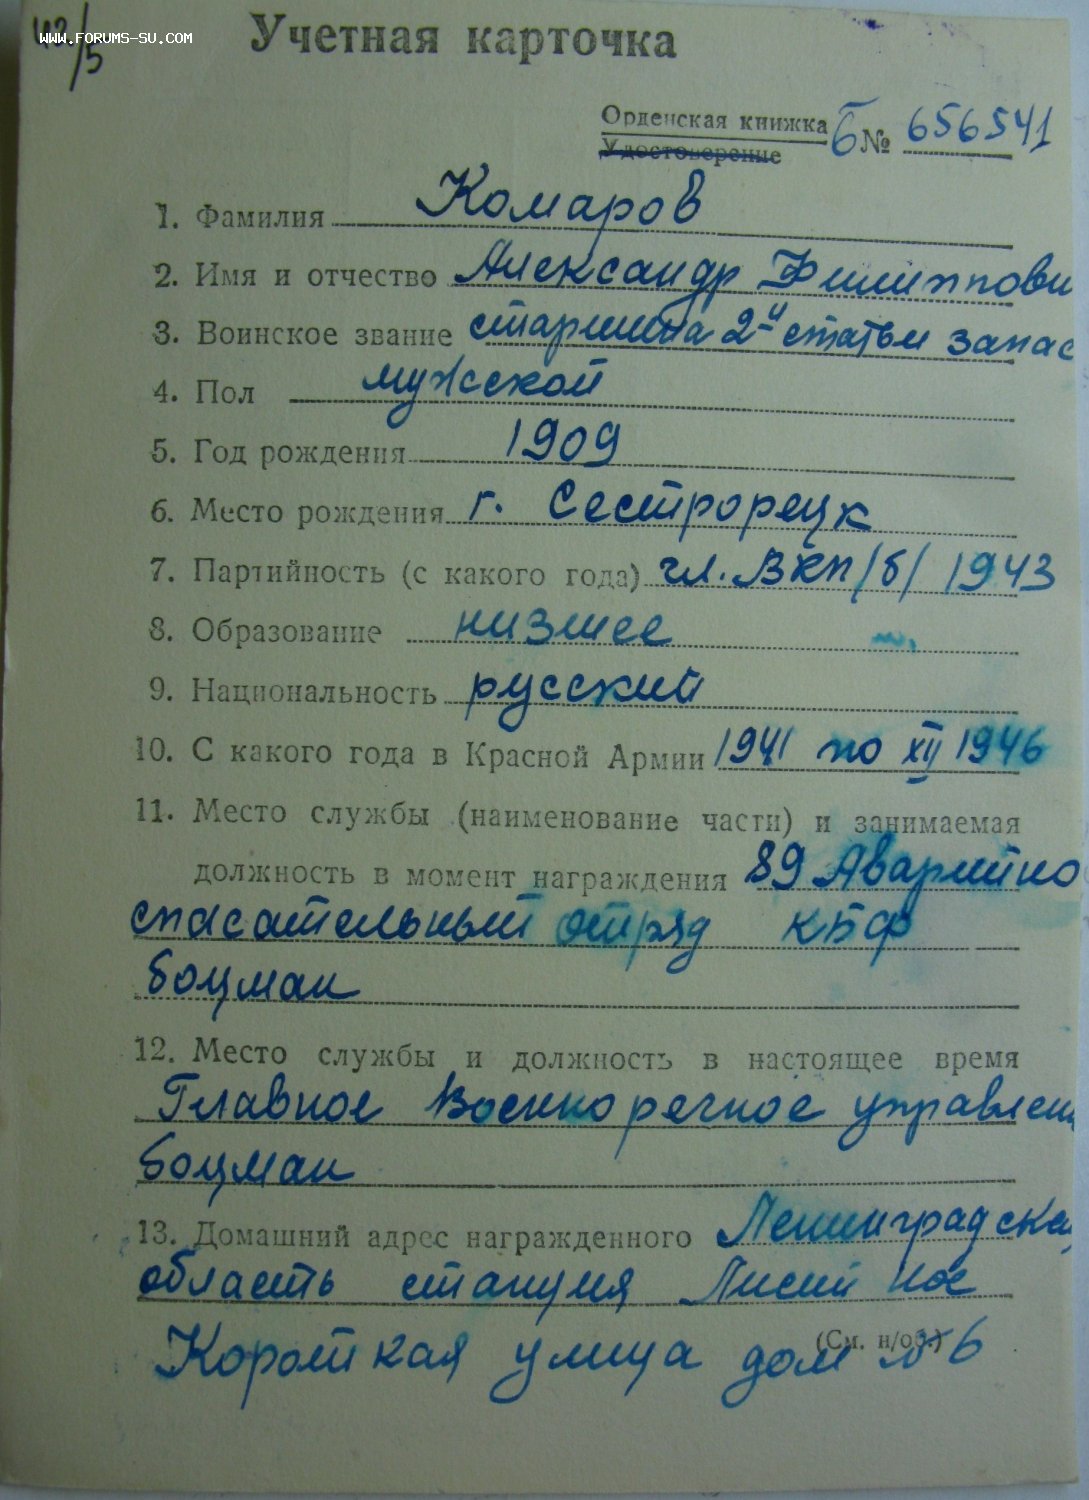 WWW.FORUMS-SU.COM
Учетная карточка
Орденская книжка Б № 656541
Удостоверение
1. Фамилия Комаров
2. Имя и отчество Александр Филиппови
3. Воинское звание старшина 2й статьи запас
4. Пол мужской
5. Год рождения 1909
6. Место рождения г. Сестрорецк
7. Партийность (с какого года) чл. ВКП/б/ 1943
8. Образование низшее
9. Национальность русский
10. С какого года в Красной Армии 1941 по XII 1946
11. Место службы (наименование части) и занимаемая
должность в момент награждения 89 Аварийно
спасательный отряд КБФ
боцман
12. Место службы и должность в настоящее время
Главное Военноречное управлени
боцман
13. Домашний адрес награжденного Ленинградска
область станция Лисий нос
(См. н/об.)
Короткая улица дом № 6